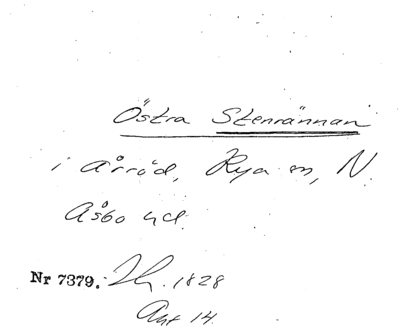 Östra Stenrännan
i Årröd, Rya sn, N.
Åsbo hd.
Nr 7379. 1828
Akt 14.